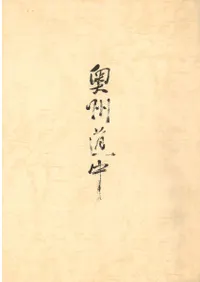 奥州道中